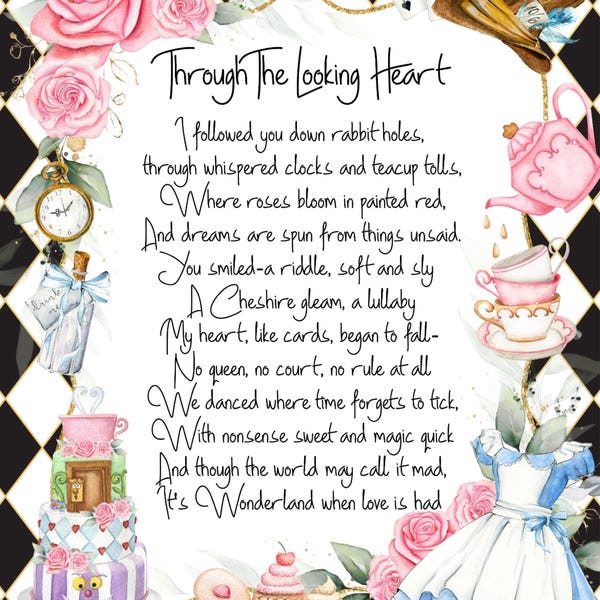 Through The Looking Heart
I followed you down rabbit holes,
through whispered clocks and teacup tolls,
Where roses bloom in painted red,
And dreams are spun from things unsaid.
You smiled-a riddle, soft and sly
A Cheshire gleam, a lullaby
My heart, like cards, began to fall-
No queen, no court, no rule at all
We danced where time forgets to tick,
With nonsense sweet and magic quick
And though the world may call it mad,
It's Wonderland when love is had
drink